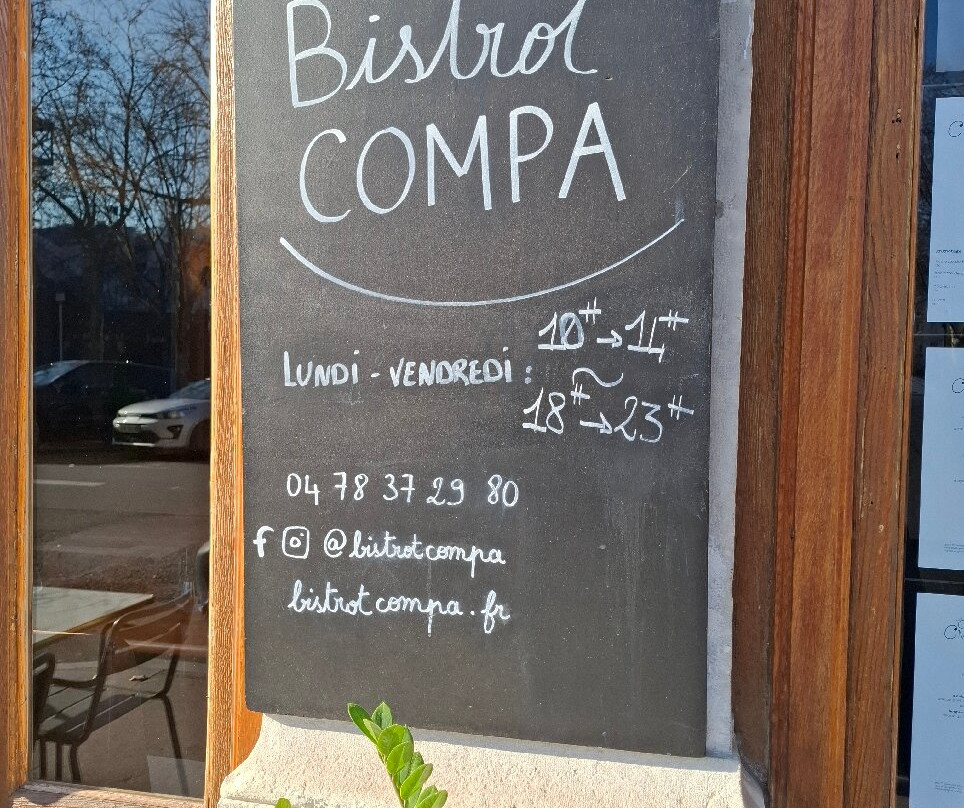 Bistrot
COMPA
10H → 14H
LUNDI - VENDREDI :
18H → 23H
04 78 37 29 80
f @bistrotcompa
bistrotcompa.fr